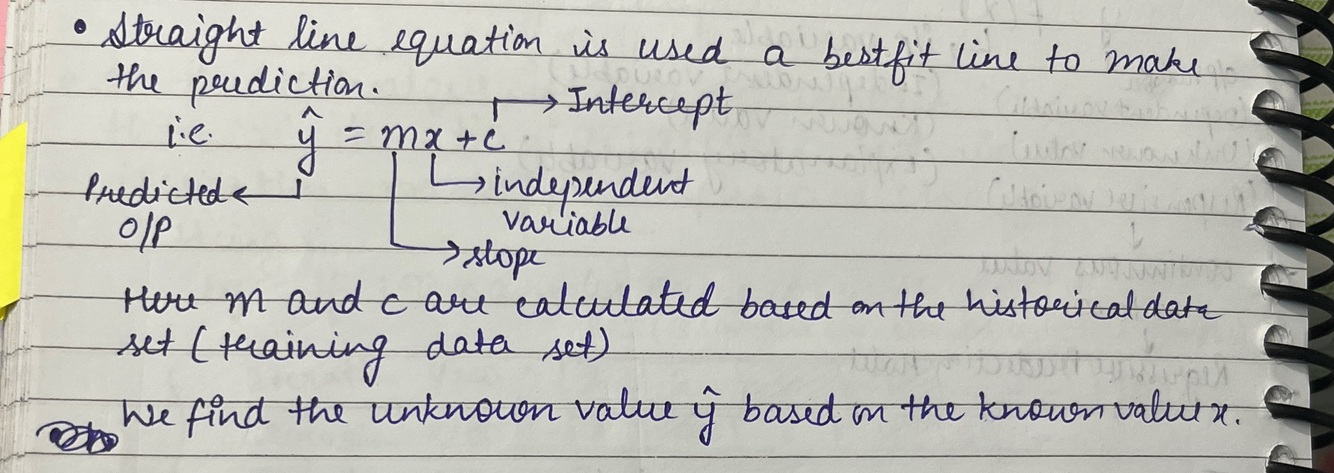 • Straight line equation is used a bestfit line to make
the prediction.
→ Intercept
i.e. ŷ = mx + c
Predicted ← → independent
O/P variable
→ slope
Here m and c are calculated based on the historical data
set (training data set)
We find the unknown value ŷ based on the known value x.